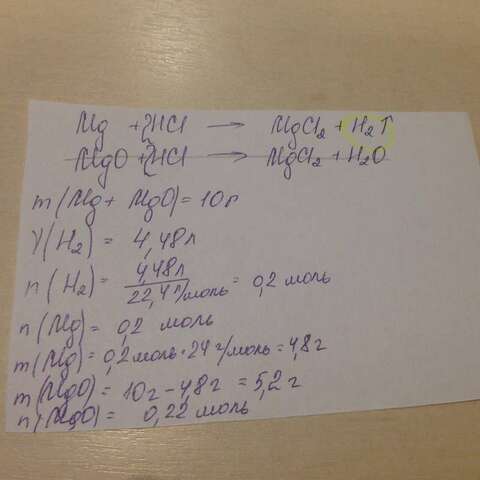 Mg + 2HCl → MgCl₂ + H₂↑
MgO + 2HCl → MgCl₂ + H₂O
m(Mg + MgO) = 10 г
V(H₂) = 4,48 л
n(H₂) = 4,48 л / 22,4 л/моль = 0,2 моль
n(Mg) = 0,2 моль
m(Mg) = 0,2 моль · 24 г/моль = 4,8 г
m(MgO) = 10 г − 4,8 г = 5,2 г
n(MgO) = 0,22 моль